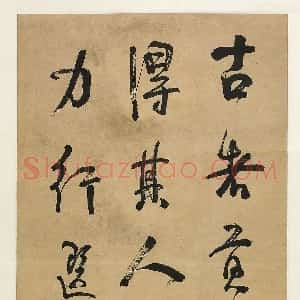 古者貢
得其人
力行選
Shufazidao.COM